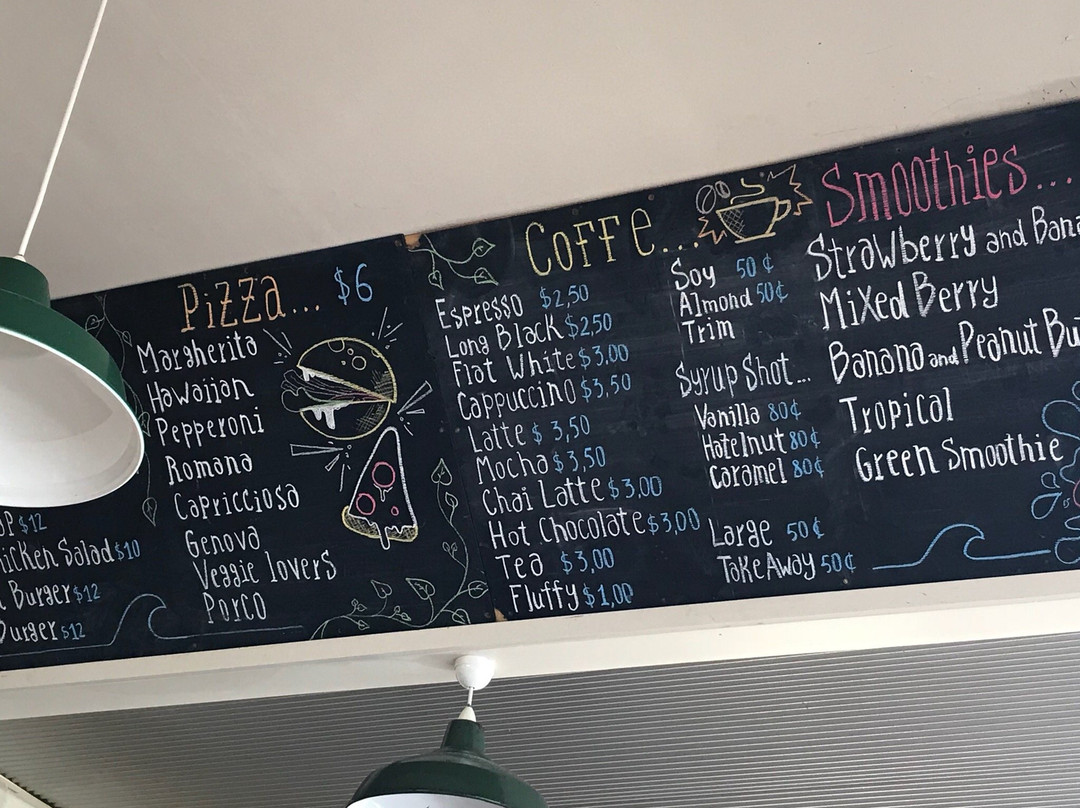 $12
Salad $10
Burger $12
$12
Pizza... $6
Margherita
Hawaiian
Pepperoni
Romana
Capricciosa
Genova
Veggie lovers
Porco
Coffe...
Espresso $2,50
Long Black $2,50
Flat White $3,00
Cappuccino $3,50
Latte $3,50
Mocha $3,50
Chai Latte $3,00
Hot Chocolate $3,00
Tea $3,00
Fluffy $1,00
Soy 50¢
Almond 50¢
Trim
Syrup Shot...
Vanilla 80¢
Hazelnut 80¢
Caramel 80¢
Large 50¢
TakeAway 50¢
Smoothies...
Strawberry and
Mixed Berry
Banana and Peanut
Tropical
Green Smoothie